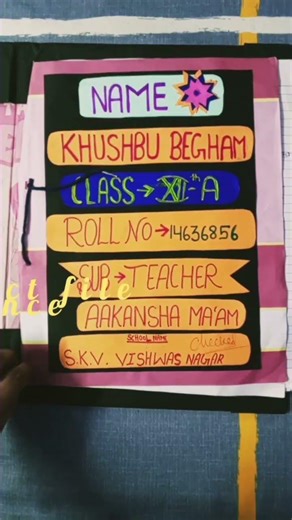 NAME
KHUSHBU BEGHAM
CLASS → XII th - A
ROLL NO → 14636856
SUB → TEACHER
ct file
nce
AAKANSHA MA'AM
SCHOOL NAME
Checked
S.K.V. VISHWAS NAGAR